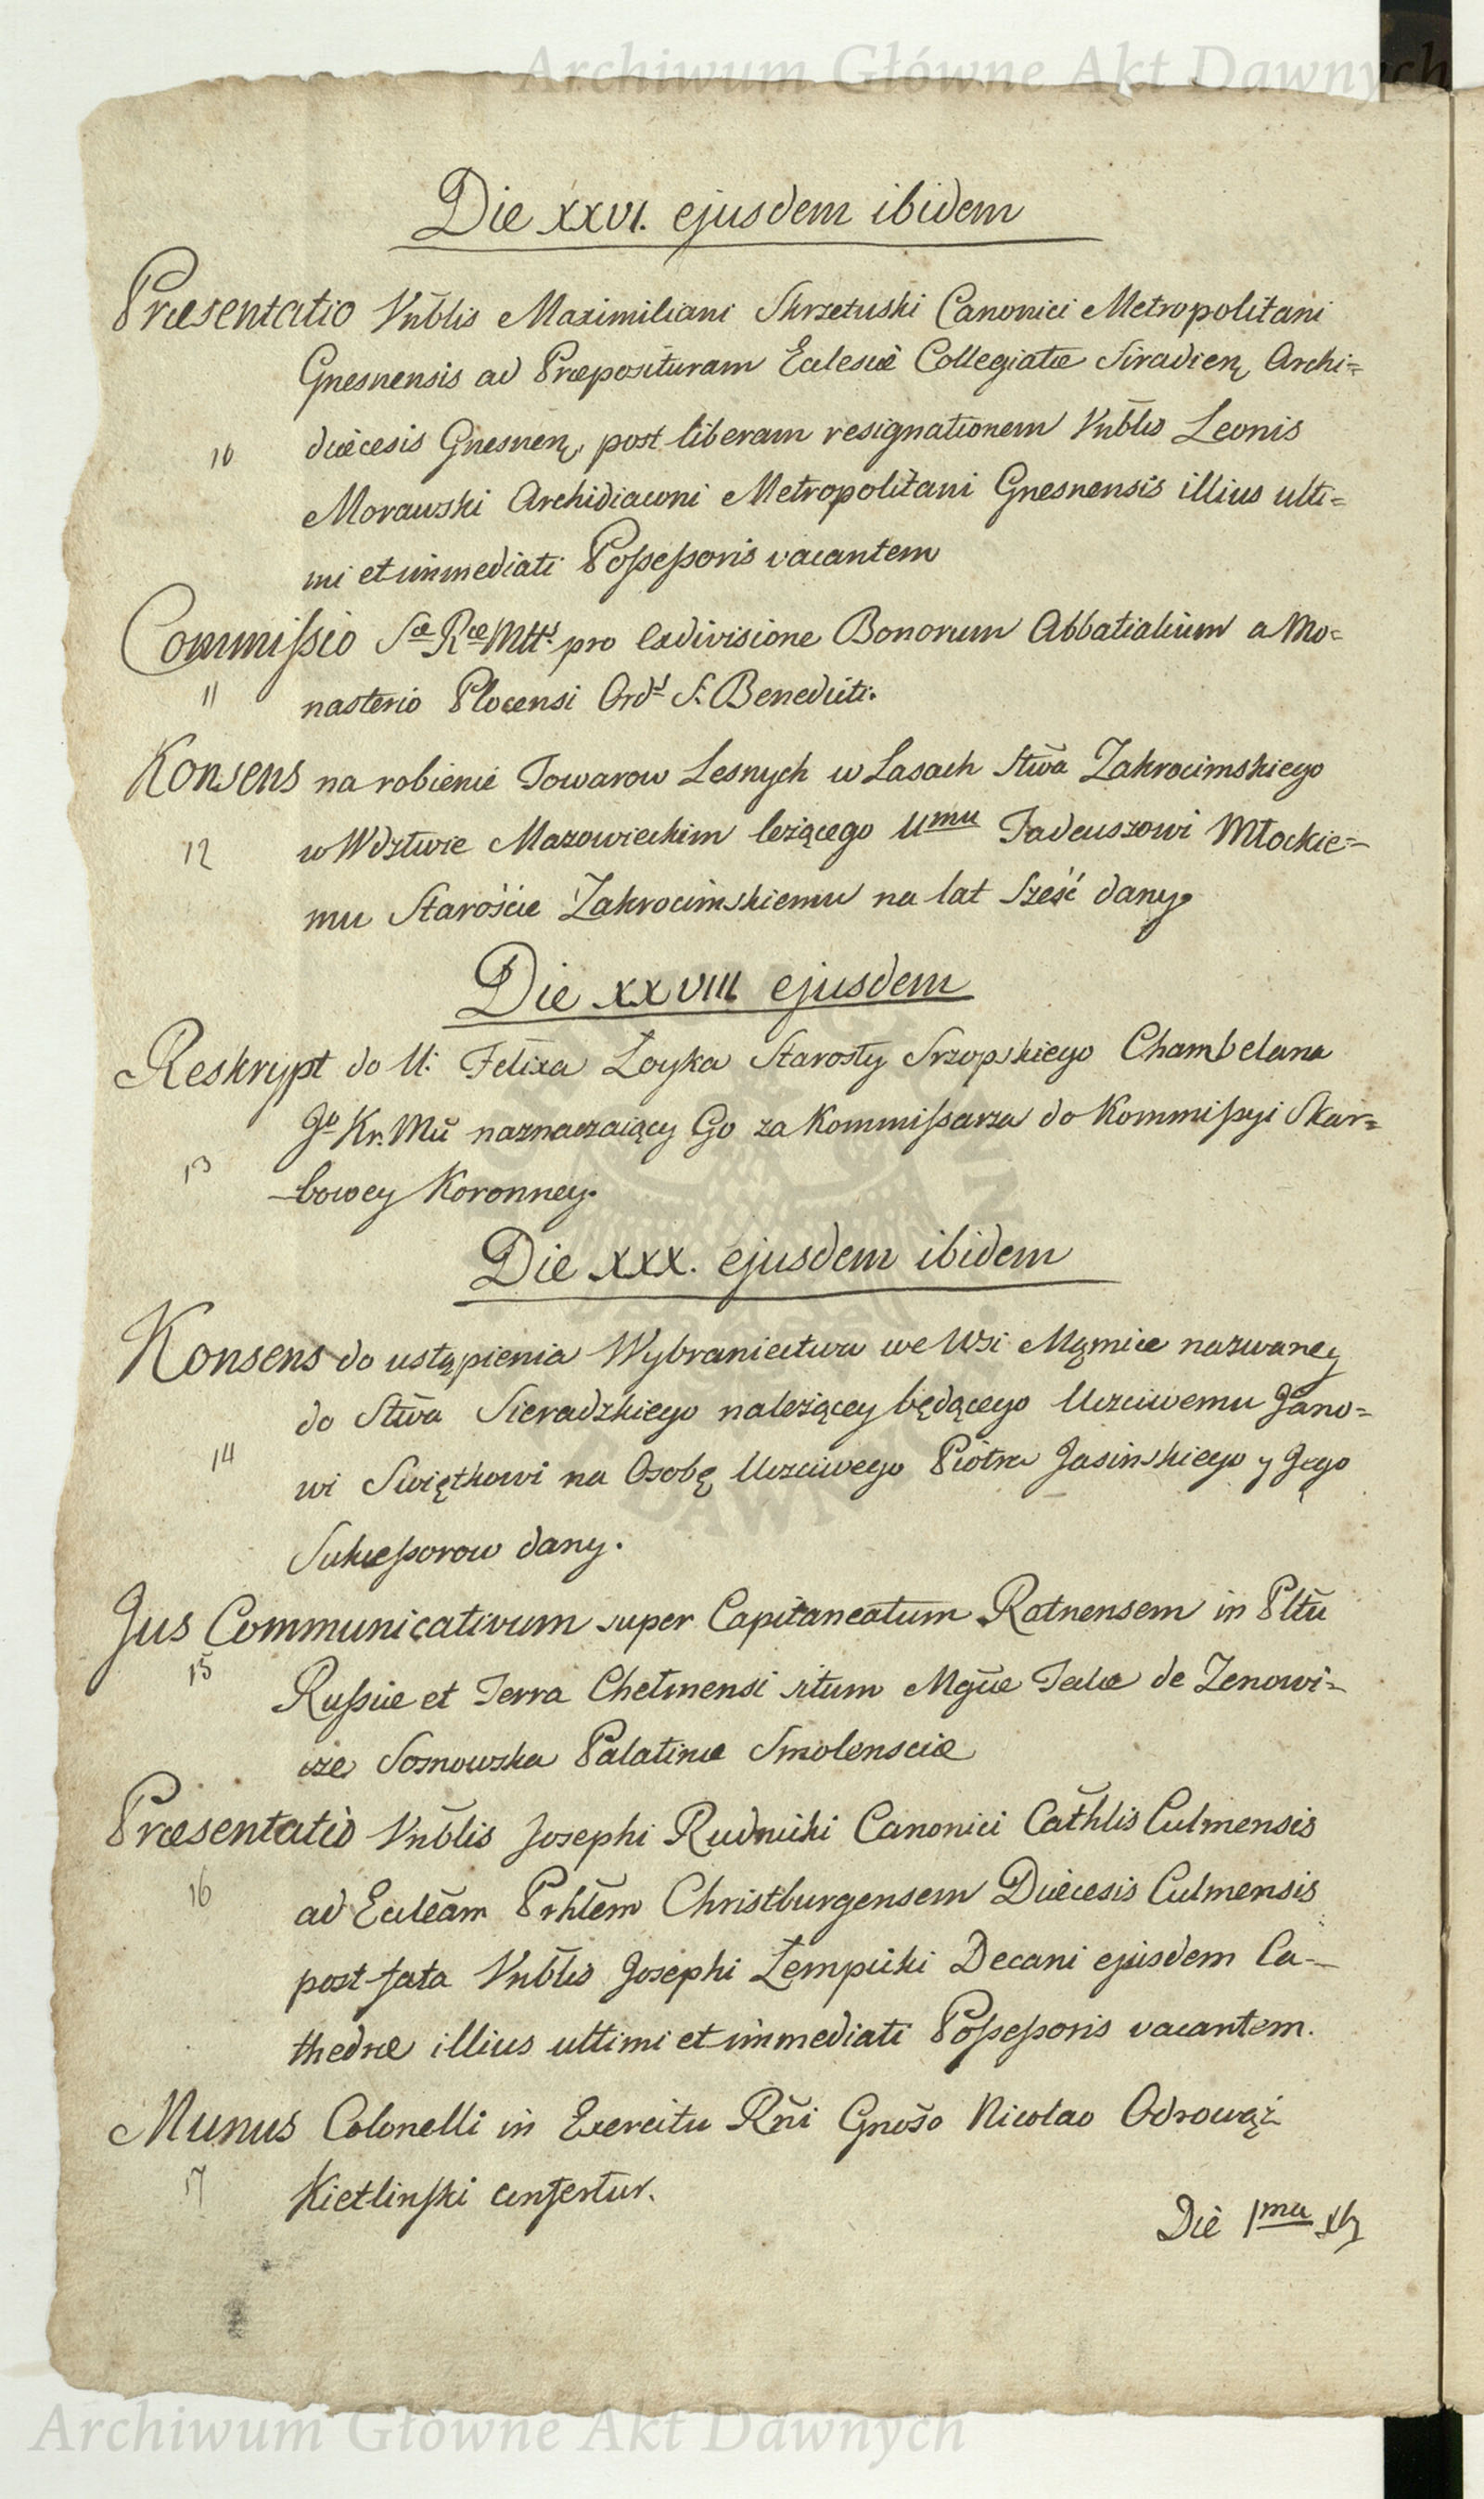 Archiwum Główne Akt Dawnych
Die XXVI. ejusdem ibidem
Præsentatio Vnblis Maximiliani Skrzetuski Canonici Metropolitani
Gnesnensis ad Præposituram Eclesiæ Collegiatæ Siradien, Archi=
10 diæcesis Gnesnen, post liberam resignationem Vnblis Leonis
Morawski Archidiaconi Metropolitani Gnesnensis illius ulti=
mi et immediati Poſseſsoris vacantem
Commiſsio Sæ Ræ Mtts pro exdivisione Bonorum Abbatialium a Mo=
11 nasterio Plocensi Ords S. Benedicti.
Konsens na robienie Towarow Lesnych w Lasach Stwa Zakrocimskiego
12 w Wdztwie Mazowieckim leżącego Umu Tadeuszowi Młockie=
mu Starośćie Zakrocimskiemu na lat sześć dany.
Die XXVIII ejusdem
Reskrypt do U: Felixa Łoyka Starosty Srzopskiego Chambelana
Jº Kr. Mci naznaczaiący Go za Kommiſsarza do Kommiſsyi Skar=
13 bowey Koronney.
Die XXX. ejusdem ibidem
Konsens do ustąpienia Wybraniectwa we Wsi Mąmice nazwaney
do Stwa Sieradzkiego należącey będącego Uczciwemu Jano=
14 wi Swiętkowi na Osobę Uczciwego Piotra Jasinskiego y Jego
Sukceſsorow dany.
Jus Communicativum super Capitaneatum Ratnensem in Pltu
15 Ruſsiæ et Terra Chełmensi situm Mgcæ Teclæ de Zenowi=
cze Sosnowska Palatinæ Smolensciæ
Præsentatio Vnblis Josephi Rudnicki Canonici Cathlis Culmensis
16 ad Eccleam Prhlem Christburgensem Diæcesis Culmensis
post fata Vnblis Josephi Łempicki Decani ejusdem Ca=
thedræ illius ultimi et immediati Poſseſsoris vacantem.
Munus Colonelli in Exercitu Rñi Gnoso Nicolao Odrowąż
17 Kietlinſki confertur.
Die 1ma Xb
Archiwum Główne Akt Dawnych